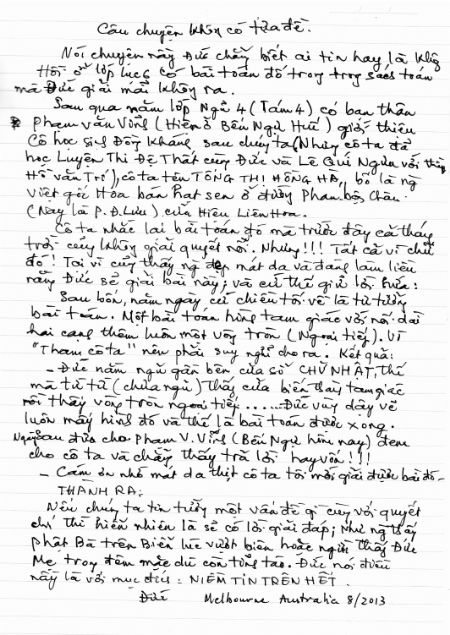 Câu chuyện không có tựa đề.
Nói chuyện này Đức chẳng biết ai tin hay là không
Hồi ở lớp lục 6 có bài toán đố trong sách toán
mà Đức giải mãi không ra.
Sau qua năm lớp Ngũ 4 (Tám 4) có bạn thân
Phạm văn Vĩnh (Hiện ở Bến Ngự Huế) giới thiệu
Cô học sinh Đồng Khánh sau chúng ta
học Luyện Thi Đệ Thất cùng Đức và Lê Quí Ngưu với thầy
Hồ văn Trố), cô ta tên TỐNG THỊ HỒNG HÀ, bố là ng
Việt gốc Hoa bán hạt sen ở đường Phan bội Châu
(Nay là P. Đ. Lưu) của Hiệu Liên Hoa.
Cô ta nhắc lại bài toán đó mà trước đây cả tháng
trời cũng không giải quyết nổi. Nhưng!!! Tất cả vì chữ
đó! Tại vì cũng thấy ng đẹp mát da và đang làm liều
rằng Đức sẽ giải bài này; và cứ thế giữ lời hứa:
Sau bốn, năm ngày, cứ chiều tối về là tư tưởng
bài toán. Một bài toán hình tam giác với nối dài
hai cạnh thêm luôn một vòng tròn (Ngoại tiếp). Vì
"Tham cô ta" nên phải suy nghĩ cho ra. Kết quả:
- Đức nằm ngủ gần bên cửa sổ CHỦ NHẬT, thế
mà từ từ (chưa ngủ) thấy cửa biến thành tam giác
rồi thấy vòng tròn ngoại tiếp ...... Đức vùng dậy vẽ
luôn mấy hình đó và thế là bài toán được xong.
sau đưa cho Phạm V. Vĩnh (Bến Ngự hôm nay) đem
cho cô ta và chẳng thấy trả lời hay vốn!!!
- Cám ơn nhờ mát da thịt cô ta tôi mới giải được bài đó -
THÀNH RA:
Nếu chúng ta tin tưởng một vấn đề gì cùng với quyết
chí thì hiển nhiên là sẽ có lời giải đáp; như ng thấy
phật Bà trên Biển lúc vượt biên hoặc người thấy Đức
Mẹ trong đêm mặc dù còn tỉnh táo. Đức nói điều
này là với mục đích: NIỀM TIN TRÊN HẾT.
Đức Melbourne Australia 8/2013